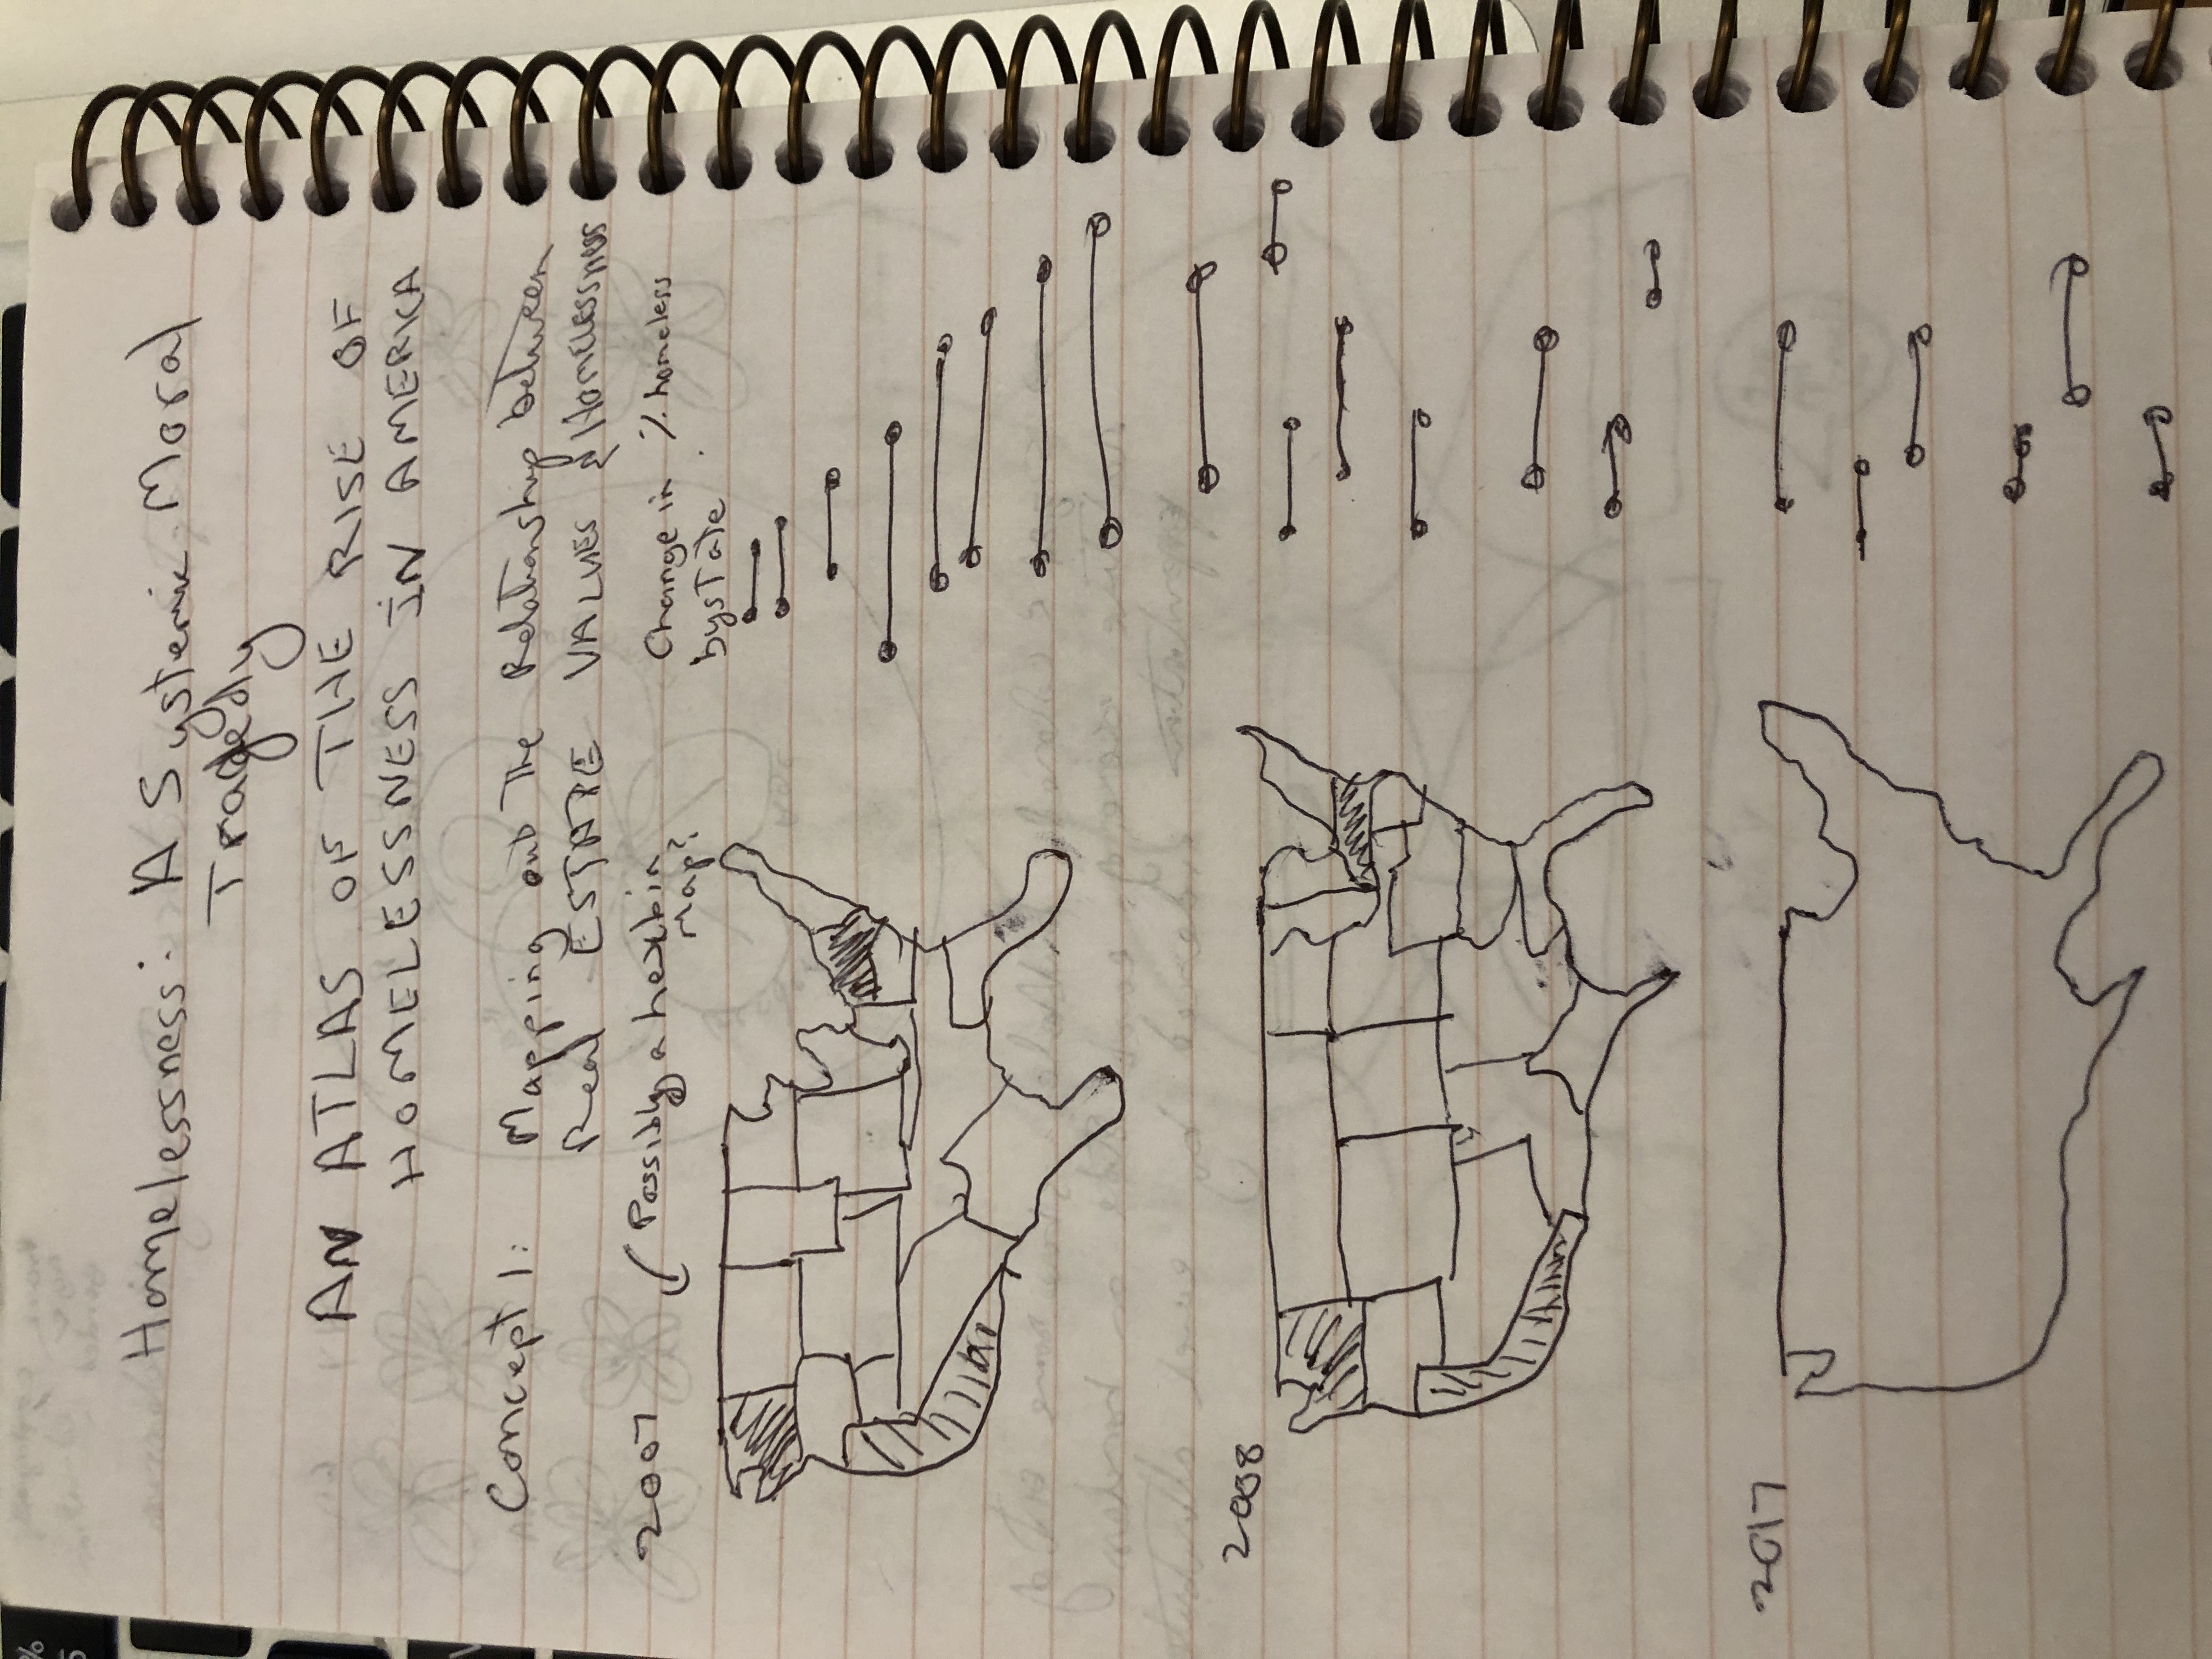 Homelessness: A Systemic Moral
Tragedy
AN ATLAS OF THE RISE OF
HOMELESSNESS IN AMERICA
Concept 1: Mapping out The Relationship between
Real ESTATE VALUES & HOMELESSNESS
2007
(Possibly a hexbin
Map?
Change in % homeless
by sTaTe
2008
2017
%
5